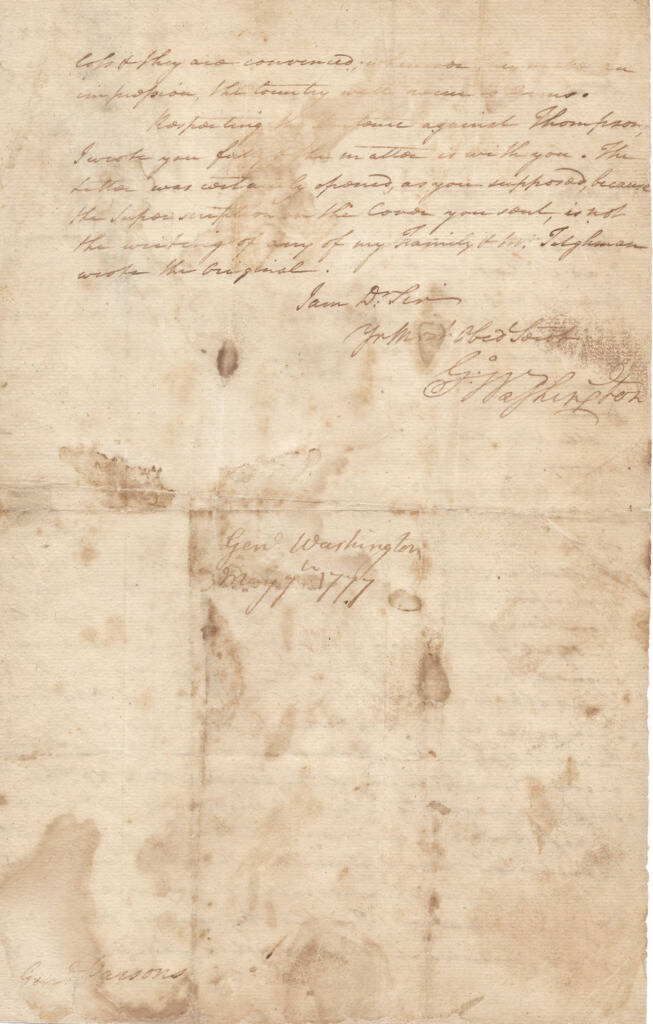 loss & they are convinced, whenever they make an
impression, the Country will
Respecting the Sentence against Thompson,
I wrote you fully & the matter is with you. The
Letter was certainly opened, as you supposed, because
the Superscription on the Cover you sent, is not
the writing of any of my Family & Mr. Tilghman
wrote the Original.
I am Dr. Sir
Yr Most Obed Servt
Go: Washington
Genl. Washington
May 7th 1777
Genl. Parsons